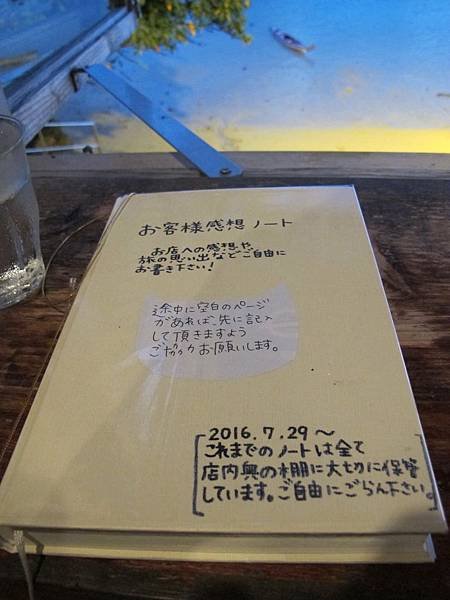 お客様感想ノート
お店への感想や、
旅の思い出などご自由に
お書き下さい!
途中に空白のページ
があれば、先に記入
して頂きますよう
お願いします。
2016.7.29～
これまでのノートは全て
店内奥の棚に大切に保管
しています。ご自由にごらん下さい。